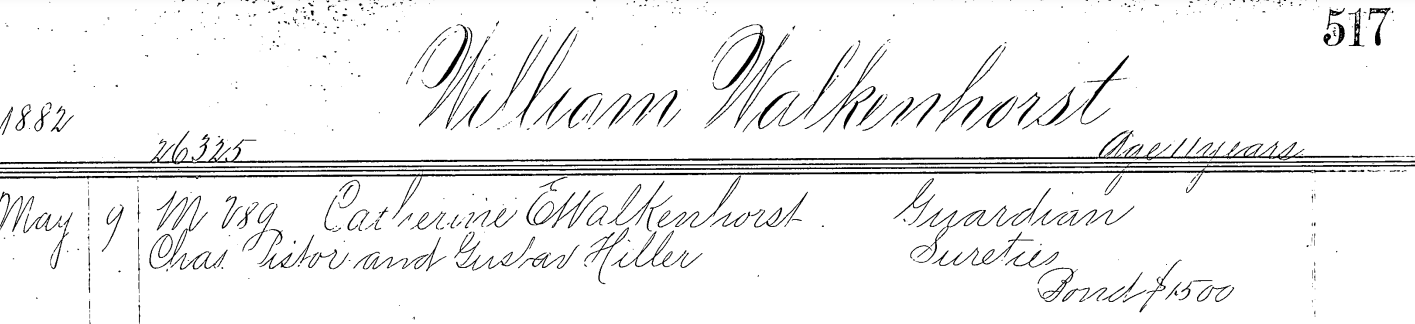 517
William Walkenhorst
1882
26325 Age 11 years
May 9 M 289 Catherine E Walkenhorst Guardian
Chas Pistor and Gustav Hiller Sureties
Bond $1500